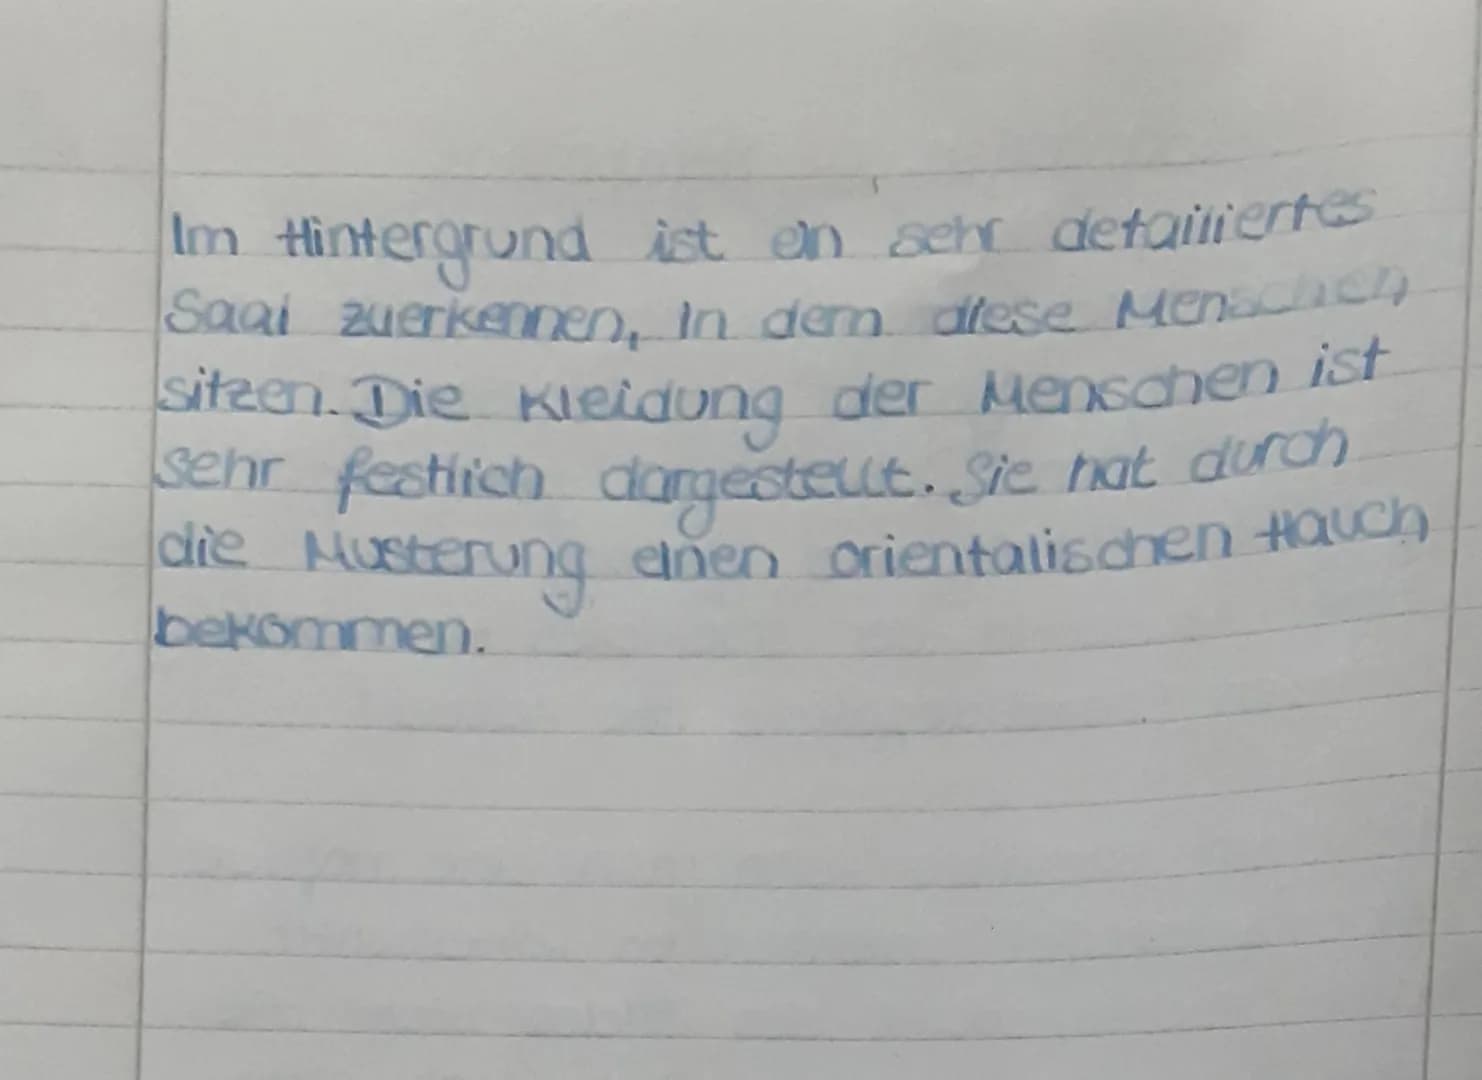 Im Hintergrund ist ein sehr detailliertes
Saal zuerkennen, in dem diese Menschen
sitzen. Die Kleidung der Menschen ist
sehr festlich dargestellt. Sie hat durch
die Musterung einen orientalischen Hauch
bekommen.